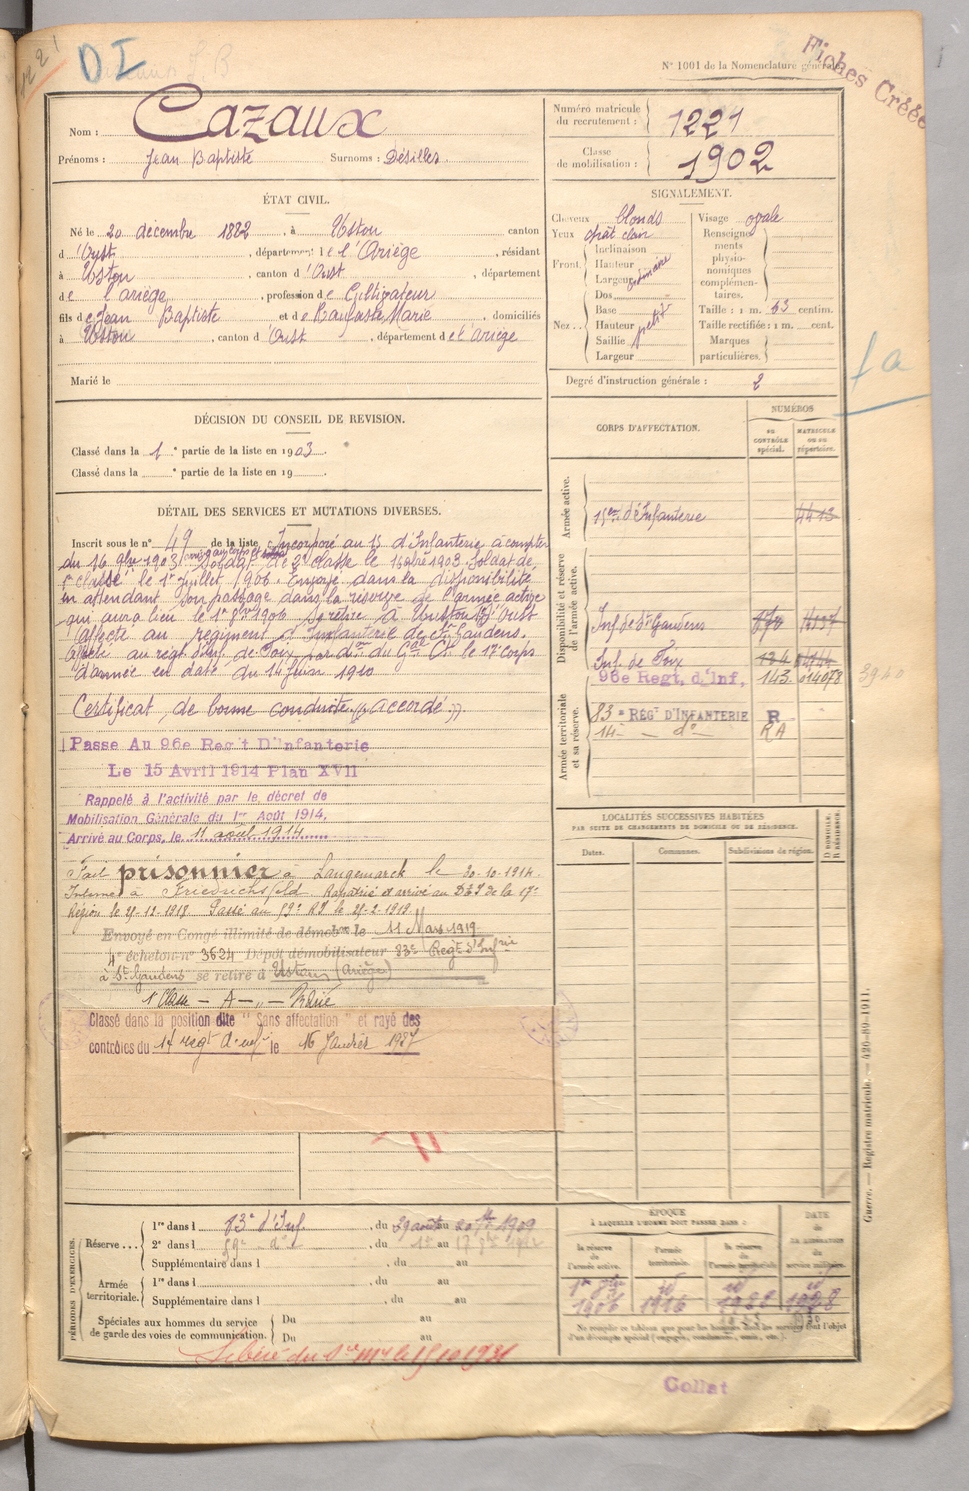 1221
D I
N° 1001 de la Nomenclature générale.
Fiches Créées
Nom : Cazaux
Prénoms : Jean Baptiste Surnoms : Désilles
Numéro matricule du recrutement : 1221
Classe de mobilisation : 1902
ÉTAT CIVIL.
Né le 20 décembre 1882, à Ustou canton
d'Oust, département de l'Ariège, résidant
à Ustou, canton d'Oust, département
de l'ariège, profession de Cultivateur
fils de Jean Baptiste et de Marie, domiciliés
à Ustou, canton d'Oust, département de l'ariège
Marié le
SIGNALEMENT.
Cheveux blonds
Yeux chât clair
Front. Inclinaison
Hauteur
Largeur
ordinaire
Nez.. Dos
Base
Hauteur
Saillie
Largeur
petit
Visage ovale
Renseignements physionomiques complémentaires.
Taille : 1 m. 63 centim.
Taille rectifiée : 1 m. cent.
Marques particulières.
Degré d'instruction générale : 2
fa
DÉCISION DU CONSEIL DE REVISION.
Classé dans la 1e partie de la liste en 1903.
Classé dans la e partie de la liste en 19
DÉTAIL DES SERVICES ET MUTATIONS DIVERSES.
Inscrit sous le n° 49 de la liste Incorporé au 15 d'Infanterie à compter
du 16 9bre 1903 Soldat de 2e classe le 16 9bre 1903. Soldat de
1re classe le 1er juillet 1906. Envoyé dans la disponibilité
en attendant son passage dans la réserve de l'armée active
qui aura lieu le 1er 1906 Se retire à Ustou Oust
Affecté au régiment d'Infanterie de St Gaudens.
Affecté au rég. d'Inf. de Foix par don du Gal Ct le 17e corps
d'armée en date du 14 Juin 1910
Certificat de bonne conduite "accordé".
Passe Au 96e Reg't D'Infanterie
Le 15 Avril 1914 Plan XVII
Rappelé à l'activité par le décret de
Mobilisation Générale du 1er Août 1914.
Arrivé au Corps, le 11 août 1914
Fait prisonnier à Langemarck le 30-10-1914.
Interné à Friedrichsfeld. Rapatrié et arrivé au D I de la 17e
Région le Passé au RI le 2-1919.
Envoyé en Congé illimité de démob le 11 Mars 1919
4e échelon n° 3624 Dépôt démobilisateur 83e Régt d'Infrie
à St Gaudens se retire à Ustou (Ariège)
Classé dans la position dite "Sans affectation" et rayé des
contrôles du 14 regt d'inf le 16 Janvier 1927
CORPS D'AFFECTATION.
NUMÉROS
AU CONTRÔLE spécial.
MATRICULE OU AU répertoire.
Armée active.
15em d'Infanterie 4413
Disponibilité et réserve de l'armée active.
Inf. de St Gaudens
Inf. de Foix
96e Regt, d'Inf, 143 014078
3940
Armée territoriale et sa réserve.
83e RÉGT D'INFANTERIE R
14 - do RA
LOCALITÉS SUCCESSIVES HABITÉES
PAR SUITE DE CHANGEMENTS DE DOMICILE OU DE RÉSIDENCE.
Dates. Communes. Subdivisions de région. D DOMICILE. R RÉSIDENCE.
PÉRIODES D'EXERCICES.
Réserve... 1re dans l 83e d'Inf., du 29 août au 1909
2e dans l do, du au 1912
Supplémentaire dans l , du au
Armée territoriale. 1re dans l , du au
Supplémentaire dans l , du au
Spéciales aux hommes du service de garde des voies de communication. Du au
Du au
Libéré du
ÉPOQUE
À LAQUELLE L'HOMME DOIT PASSER DANS :
la réserve de l'armée active.
l'armée territoriale.
la réserve de l'armée territoriale.
DATE de LA LIBÉRATION du service militaire.
1906 1916 1928
Guerre. — Registre matricule. — 426-89-1911.
Collat